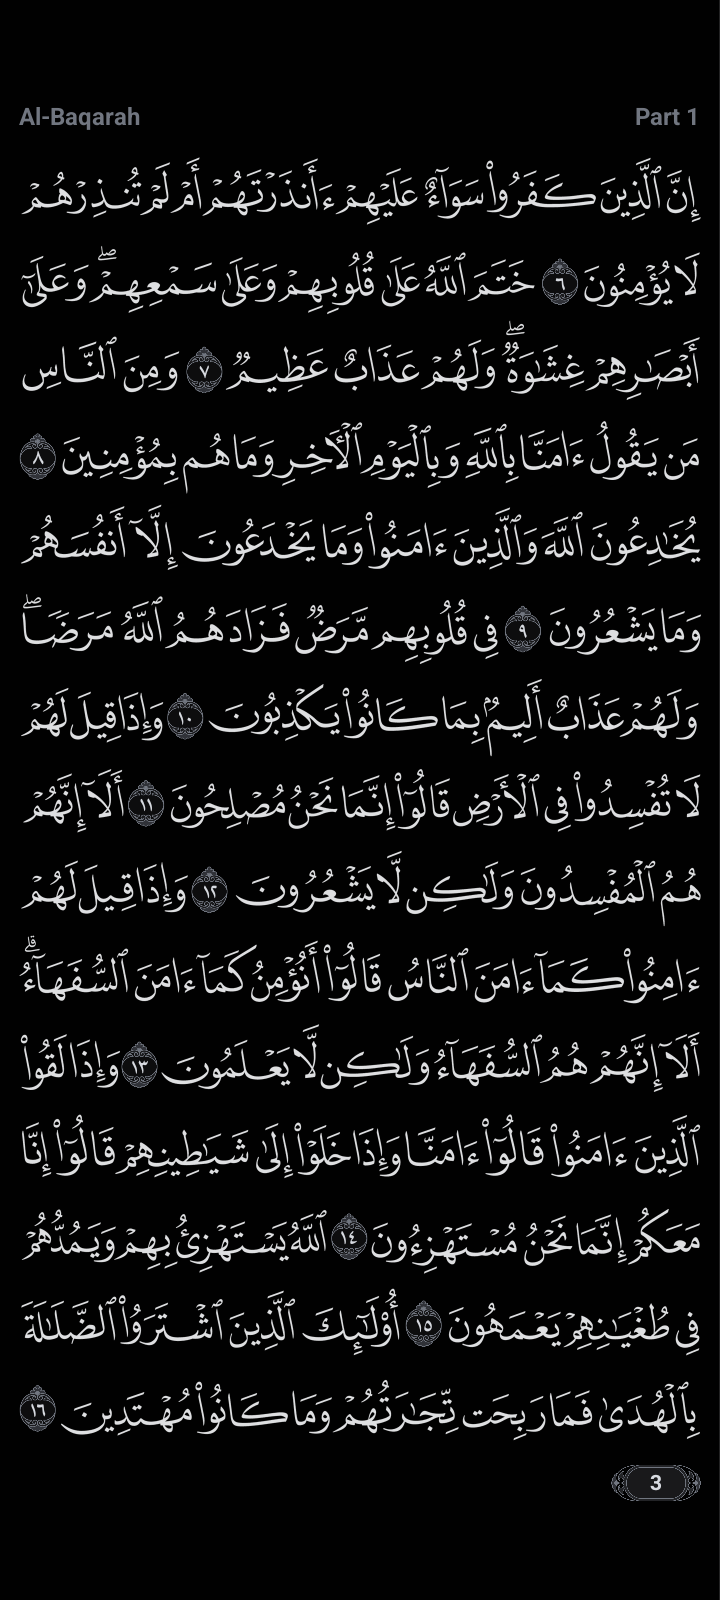 Al-Baqarah Part 1
إِنَّ ٱلَّذِينَ كَفَرُوا۟ سَوَآءٌ عَلَيْهِمْ ءَأَنذَرْتَهُمْ أَمْ لَمْ تُنذِرْهُمْ
لَا يُؤْمِنُونَ ٦ خَتَمَ ٱللَّهُ عَلَىٰ قُلُوبِهِمْ وَعَلَىٰ سَمْعِهِمْ ۖ وَعَلَىٰٓ
أَبْصَـٰرِهِمْ غِشَـٰوَةٌ ۖ وَلَهُمْ عَذَابٌ عَظِيمٌ ٧ وَمِنَ ٱلنَّاسِ
مَن يَقُولُ ءَامَنَّا بِٱللَّهِ وَبِٱلْيَوْمِ ٱلْـَٔاخِرِ وَمَا هُم بِمُؤْمِنِينَ ٨
يُخَـٰدِعُونَ ٱللَّهَ وَٱلَّذِينَ ءَامَنُوا۟ وَمَا يَخْدَعُونَ إِلَّآ أَنفُسَهُمْ
وَمَا يَشْعُرُونَ ٩ فِى قُلُوبِهِم مَّرَضٌ فَزَادَهُمُ ٱللَّهُ مَرَضًا ۖ
وَلَهُمْ عَذَابٌ أَلِيمٌۢ بِمَا كَانُوا۟ يَكْذِبُونَ ١٠ وَإِذَا قِيلَ لَهُمْ
لَا تُفْسِدُوا۟ فِى ٱلْأَرْضِ قَالُوٓا۟ إِنَّمَا نَحْنُ مُصْلِحُونَ ١١ أَلَآ إِنَّهُمْ
هُمُ ٱلْمُفْسِدُونَ وَلَـٰكِن لَّا يَشْعُرُونَ ١٢ وَإِذَا قِيلَ لَهُمْ
ءَامِنُوا۟ كَمَآ ءَامَنَ ٱلنَّاسُ قَالُوٓا۟ أَنُؤْمِنُ كَمَآ ءَامَنَ ٱلسُّفَهَآءُ ۗ
أَلَآ إِنَّهُمْ هُمُ ٱلسُّفَهَآءُ وَلَـٰكِن لَّا يَعْلَمُونَ ١٣ وَإِذَا لَقُوا۟
ٱلَّذِينَ ءَامَنُوا۟ قَالُوٓا۟ ءَامَنَّا وَإِذَا خَلَوْا۟ إِلَىٰ شَيَـٰطِينِهِمْ قَالُوٓا۟ إِنَّا
مَعَكُمْ إِنَّمَا نَحْنُ مُسْتَهْزِءُونَ ١٤ ٱللَّهُ يَسْتَهْزِئُ بِهِمْ وَيَمُدُّهُمْ
فِى طُغْيَـٰنِهِمْ يَعْمَهُونَ ١٥ أُو۟لَـٰٓئِكَ ٱلَّذِينَ ٱشْتَرَوُا۟ ٱلضَّلَـٰلَةَ
بِٱلْهُدَىٰ فَمَا رَبِحَت تِّجَـٰرَتُهُمْ وَمَا كَانُوا۟ مُهْتَدِينَ ١٦
3